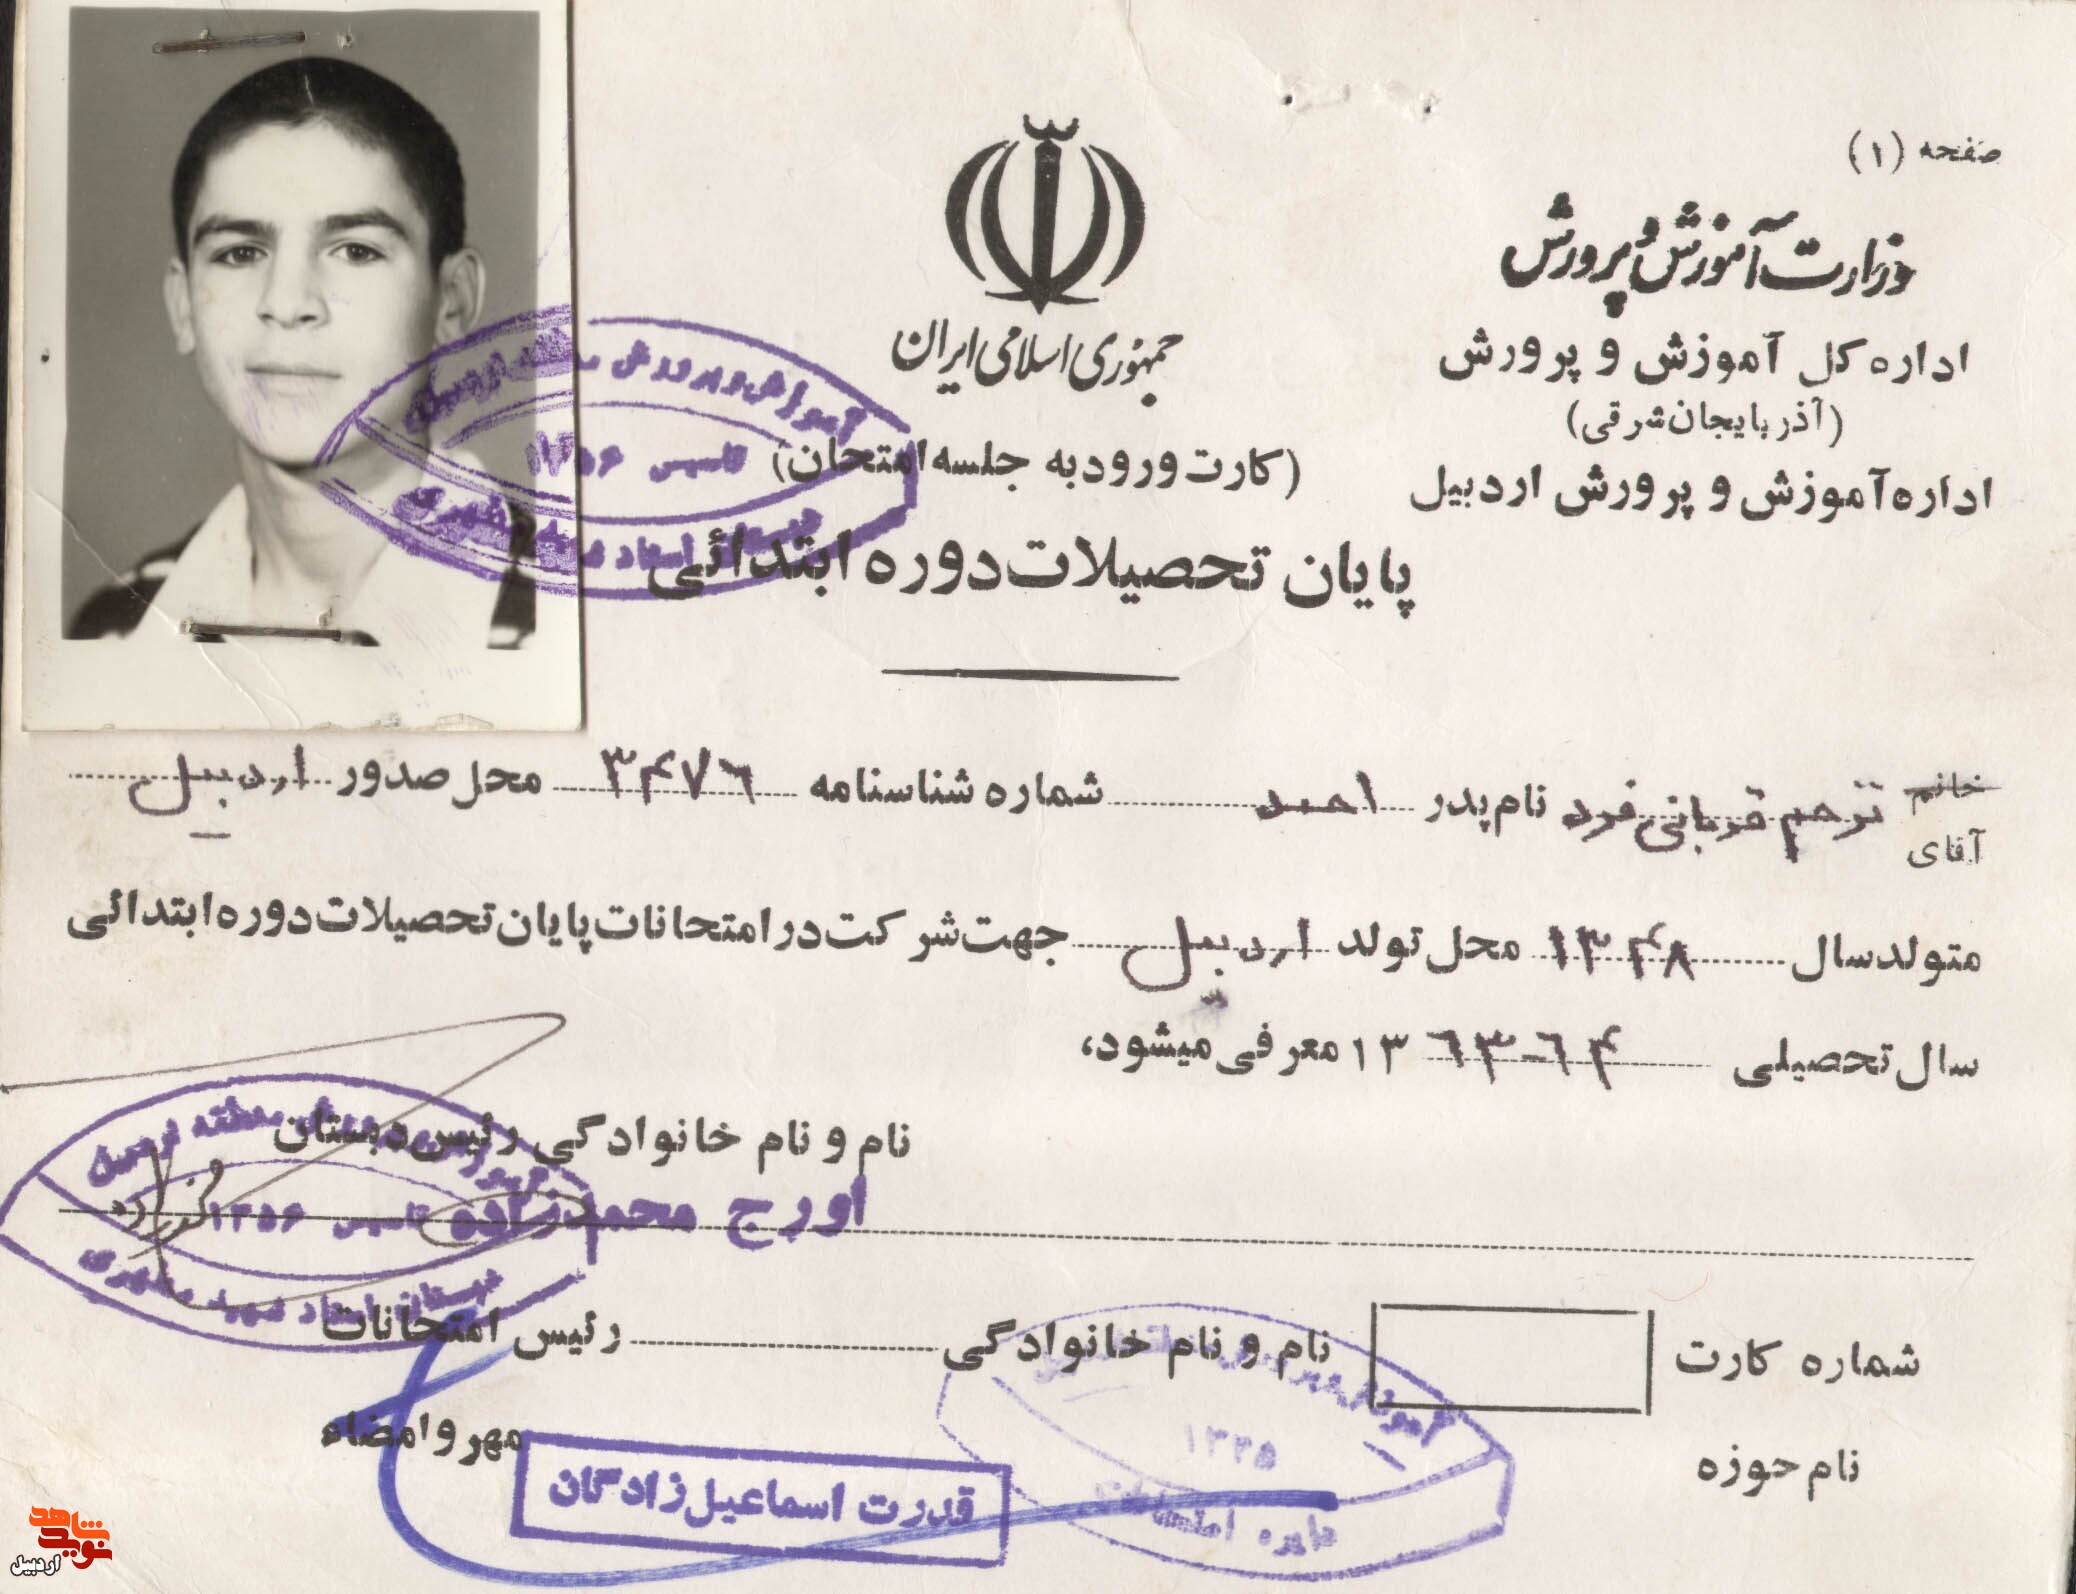 صفحه (۱)
وزارت آموزش و پرورش
اداره کل آموزش و پرورش
(آذربایجان شرقی)
اداره آموزش و پرورش اردبیل
جمهوری اسلامی ایران
(کارت ورود به جلسه امتحان)
پایان تحصیلات دوره ابتدائی
آموزش و پرورش منطقه اردبیل
تاسیس ۱۳۵۶
دبستان استاد شهید مطهری
خانم
آقای
ترحم قربانی فرد نام پدر احمد شماره شناسنامه ۳۴۷۶ محل صدور اردبیل
متولد سال ۱۳۴۸ محل تولد اردبیل جهت شرکت در امتحانات پایان تحصیلات دوره ابتدائی
سال تحصیلی ۶۴-۶۳ ۱۳ معرفی میشود،
نام و نام خانوادگی رئیس دبستان
اورج محمدزاده
آموزش و پرورش منطقه اردبیل
تاسیس ۱۳۵۶
دبستان استاد شهید مطهری
شماره کارت
نام و نام خانوادگی رئیس امتحانات
نام حوزه
مهر و امضاء
قدرت اسماعیل زادگان
آموزش و پرورش
۱۳۳۵
دایره امتحانات
نوید شاهد
اردبیل